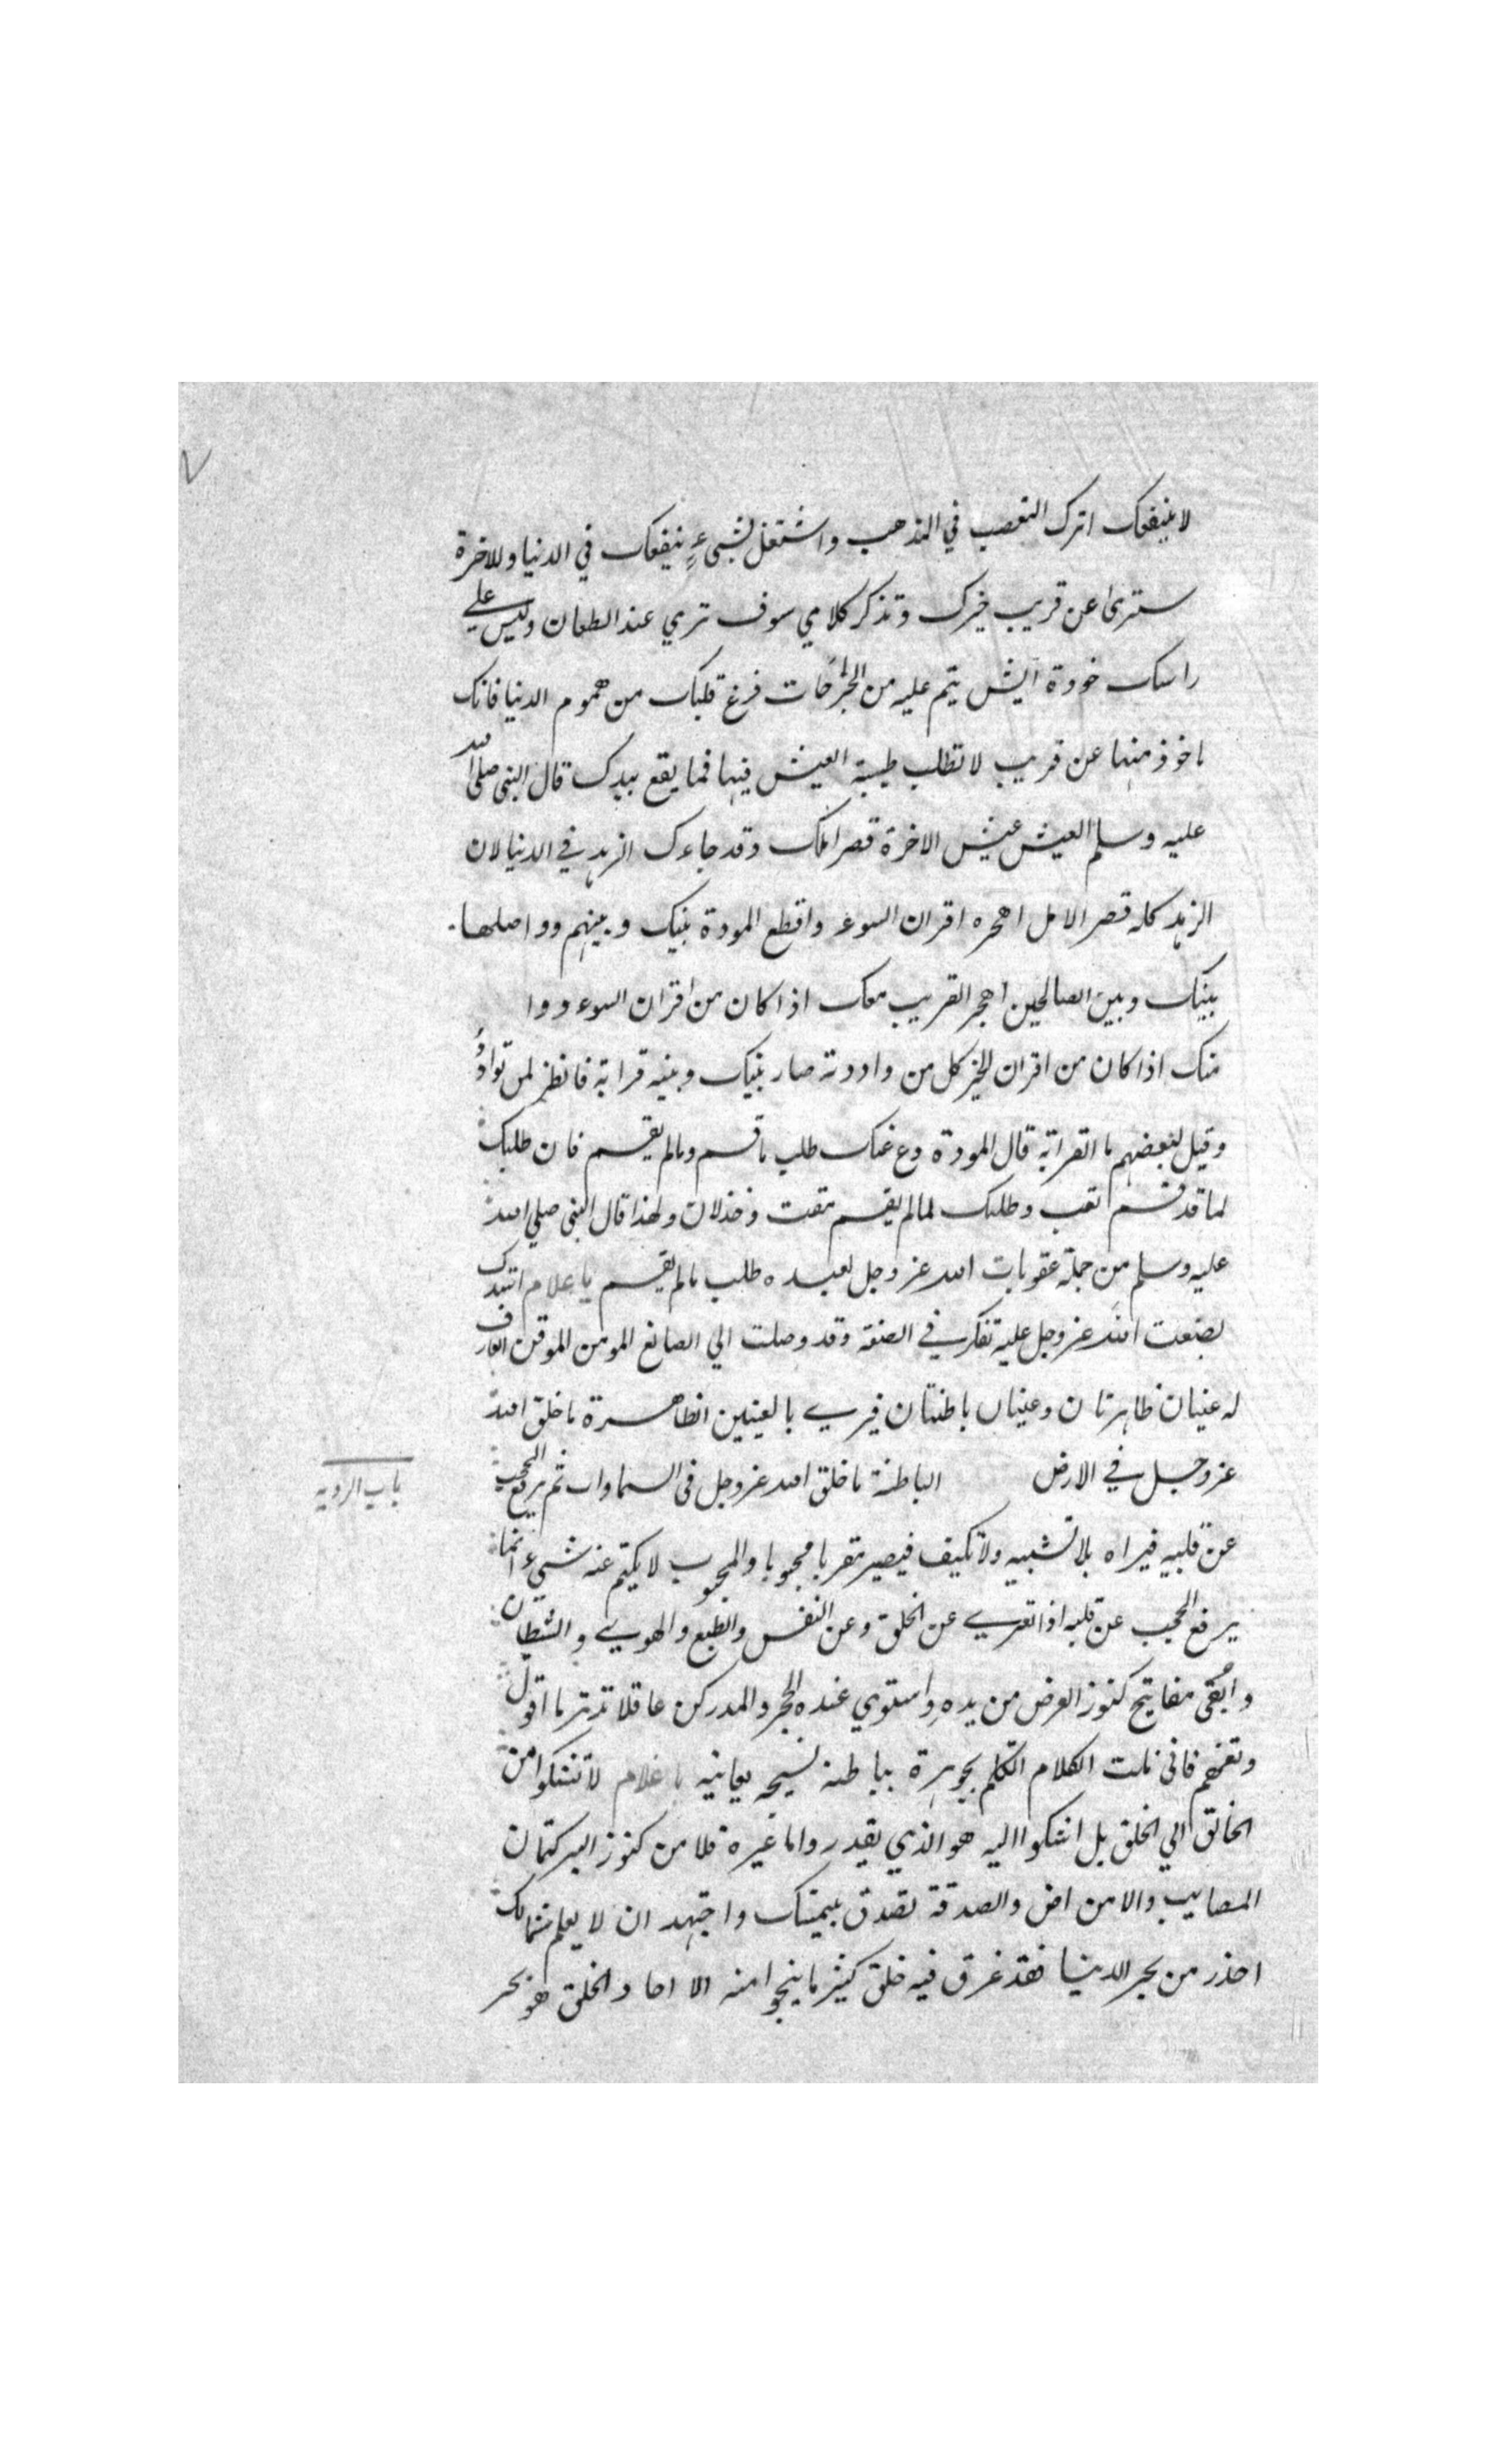 لا ينفعك اترك التعصب في المذهب واشتغل بشيء ينفعك في الدنيا وللاخرة
سترى عن قريب خبرك وتذكر كلامي سوف تري عند الطعان وليس علي
راسك خودة ايش يتم عليه من الجراحات فرغ قلبك من هموم الدنيا فانك
ماخوذ منها عن قريب لا تطلب طيبة العيش فيها فما يقع بيدك قال النبي صلى الله
عليه وسلم العيش عيش الاخرة قصر املك وقد جاءك الزهد في الدنيا لان
الزهد كله قصر الامل اهجره اقران السوء واقطع المودة بينك وبينهم وواصلها
بينك وبين الصالحين اهجر القريب معك اذا كان من اقران السوء ووا
منك اذا كان من اقران الخير كل من واددته صار بينك وبينه قرابة فانظر لمن تواد
وقيل لبعضهم ما القرابة قال المودة دع عنك طلب ما قسم وما لم يقسم فان طلبك
لما قد قسم تعب وطلبك لما لم يقسم مقت وخذلان ولهذا قال النبي صلي الله
عليه وسلم من جملة عقوبات الله عز وجل لعبده طلب ما لم يقسم يا غلام استدل
بصنعت الله عز وجل عليه تفكر في الصنعة وقد وصلت الي الصانع المومن الموقن العارف
له عينان ظاهرتان وعينان باطنتان فيري بالعينين الظاهرة ما خلق الله
عز وجل في الارض الباطنة ما خلق الله عز وجل في السماوات ثم يرفع الحجب
باب الرويه
عن قلبيه فيراه بلا تشبيه ولا تكيف فيصير مقربا محبوبا والمحبوب لا يكتم عنه شيء انما
يرفع الحجب عن قلبه اذا تعري عن الخلق وعن النفس والطبع والهوي والشيطان
والقي مفاتيح كنوز العرض من يده واستوي عنده الحجر والمدر كن عاقلا تدبر ما اقول
وتفهم فاني نلت الكلام اتكلم بجوهرة بباطنه بمعانيه يا غلام لا تشكوا من
الخالق الي الخلق بل اشكوا اليه هو الذي يقدر واما غيره فلا من كنوز البر كتمان
المصايب والامراض والصدقة تصدق بيمينك واجتهد ان لا يعلم شمالك
احذر من بحر الدنيا فقد غرق فيه خلق كثير ما ينجوا منه الا احاد الخلق هو بحر